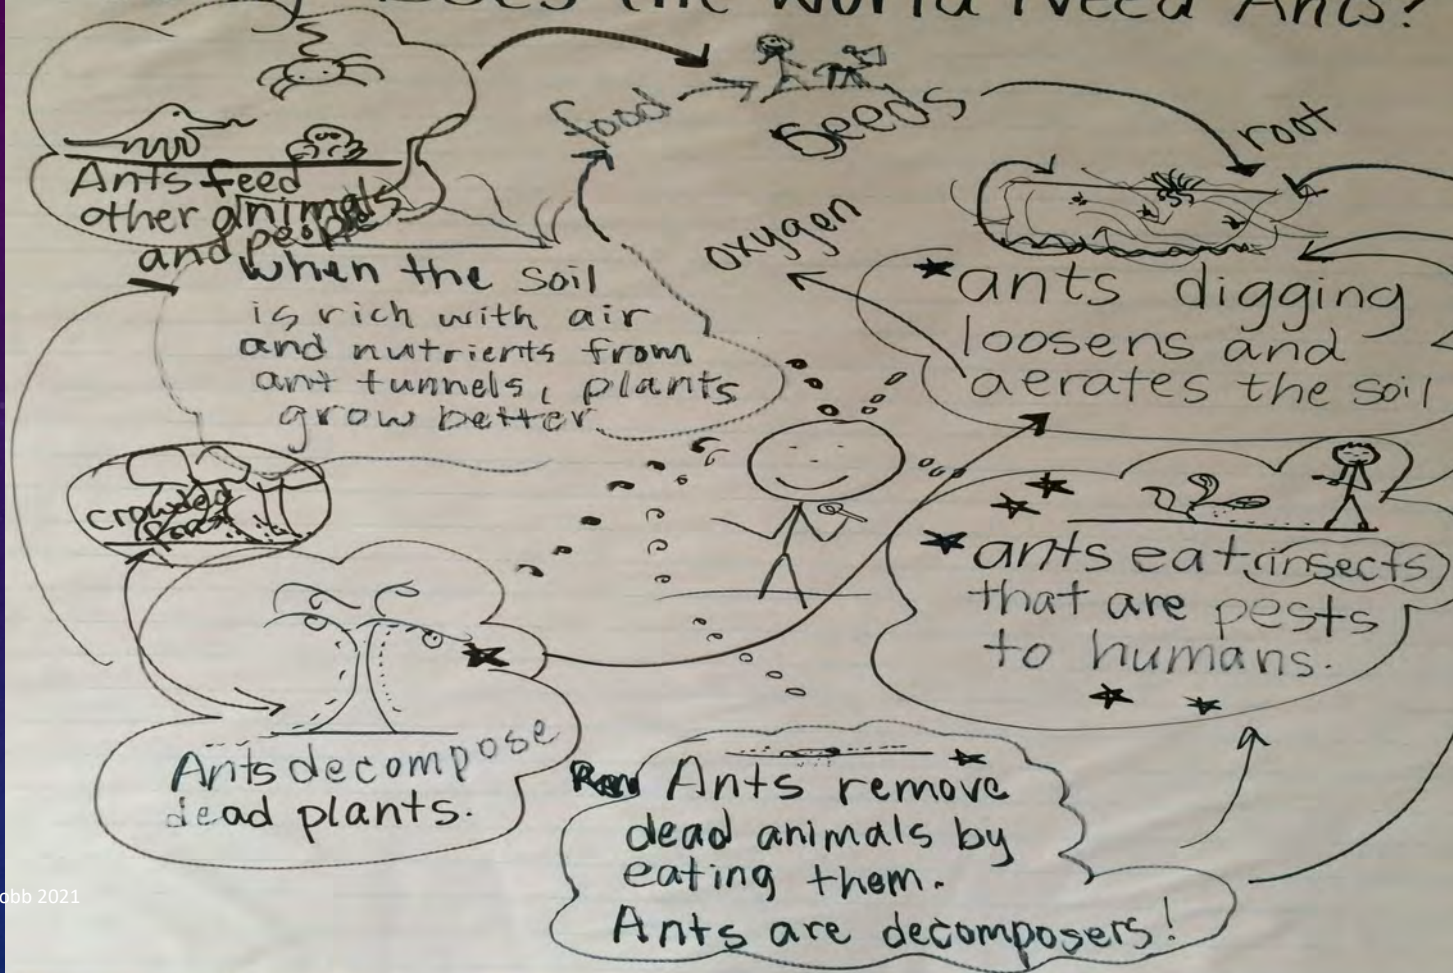 Does the World Need Ants?
food
Seeds
root
oxygen
Ants feed
other animals
and people
when the soil
is rich with air
and nutrients from
ant tunnels, plants
grow better.
*ants digging
loosens and
aerates the soil
crowded
forest
*ants eat insects
that are pests
to humans.
Ants decompose
dead plants.
Ants remove
dead animals by
eating them.
Ants are decomposers!
obb 2021